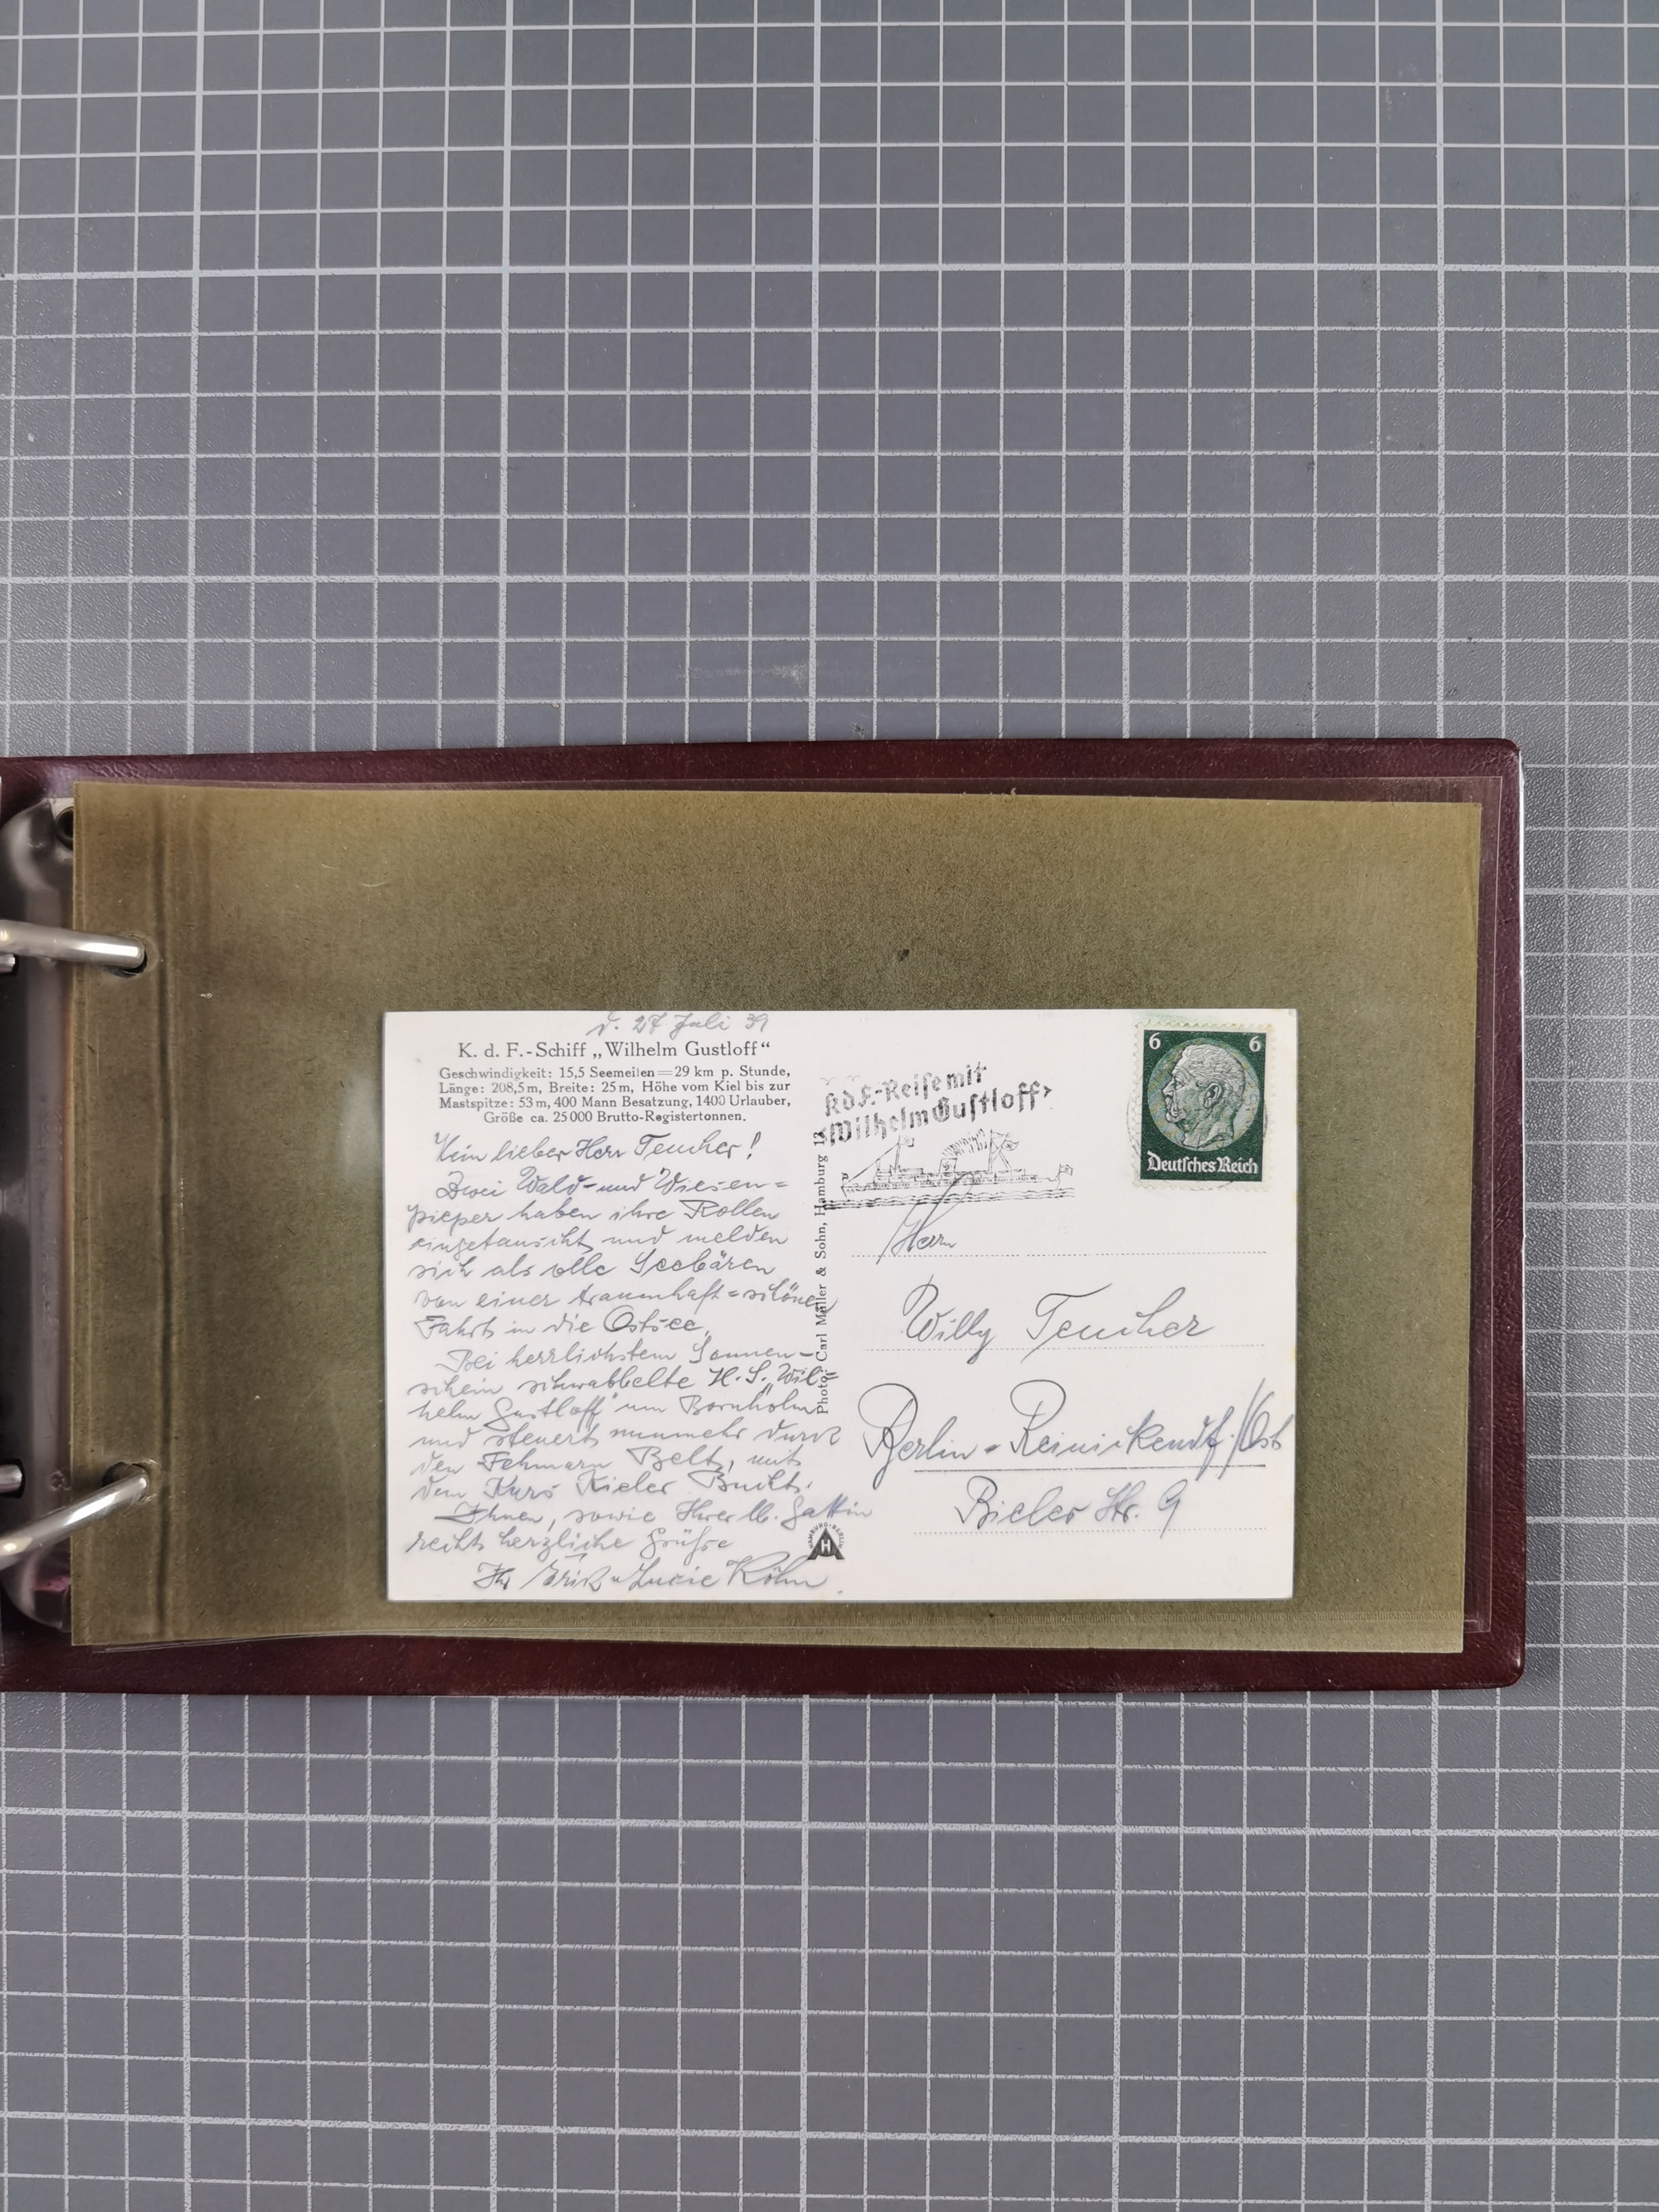 d. 27 Juli 39
K. d. F.-Schiff „Wilhelm Gustloff“
Geschwindigkeit: 15,5 Seemeilen=29 km p. Stunde,
Länge: 208,5 m, Breite: 25 m, Höhe vom Kiel bis zur
Mastspitze: 53 m, 400 Mann Besatzung, 1400 Urlauber,
Größe ca. 25 000 Brutto-Registertonnen.
Mein lieber Herr Teucher!
Zwei Wald- und Wiesen=
pieper haben ihre Rollen
eingetauscht und melden
sich als olle Seebären
von einer traumhaft=schönen
Fahrt in die Ostsee.
Bei herrlichstem Sonnen-
schein schwabbelte H. S. „Wil=
helm Gustloff“ um Bornholm
und steuert nunmehr durch
den Fehmarn Belt, mit
dem Kurs Kieler Bucht.
Ihnen, sowie Ihrer lb. Gattin
recht herzliche Grüße
Ihr Erich u Lucie Köhn.
Photo: Carl Müller & Sohn, Hamburg 13
HAMBURG-BERLIN
H
KdF.-Reise mit
„Wilhelm Gustloff“
6 6
Deutsches Reich
Herrn
Willy Teucher
Berlin - Reinickendf./Ost
Bieler Str. 9